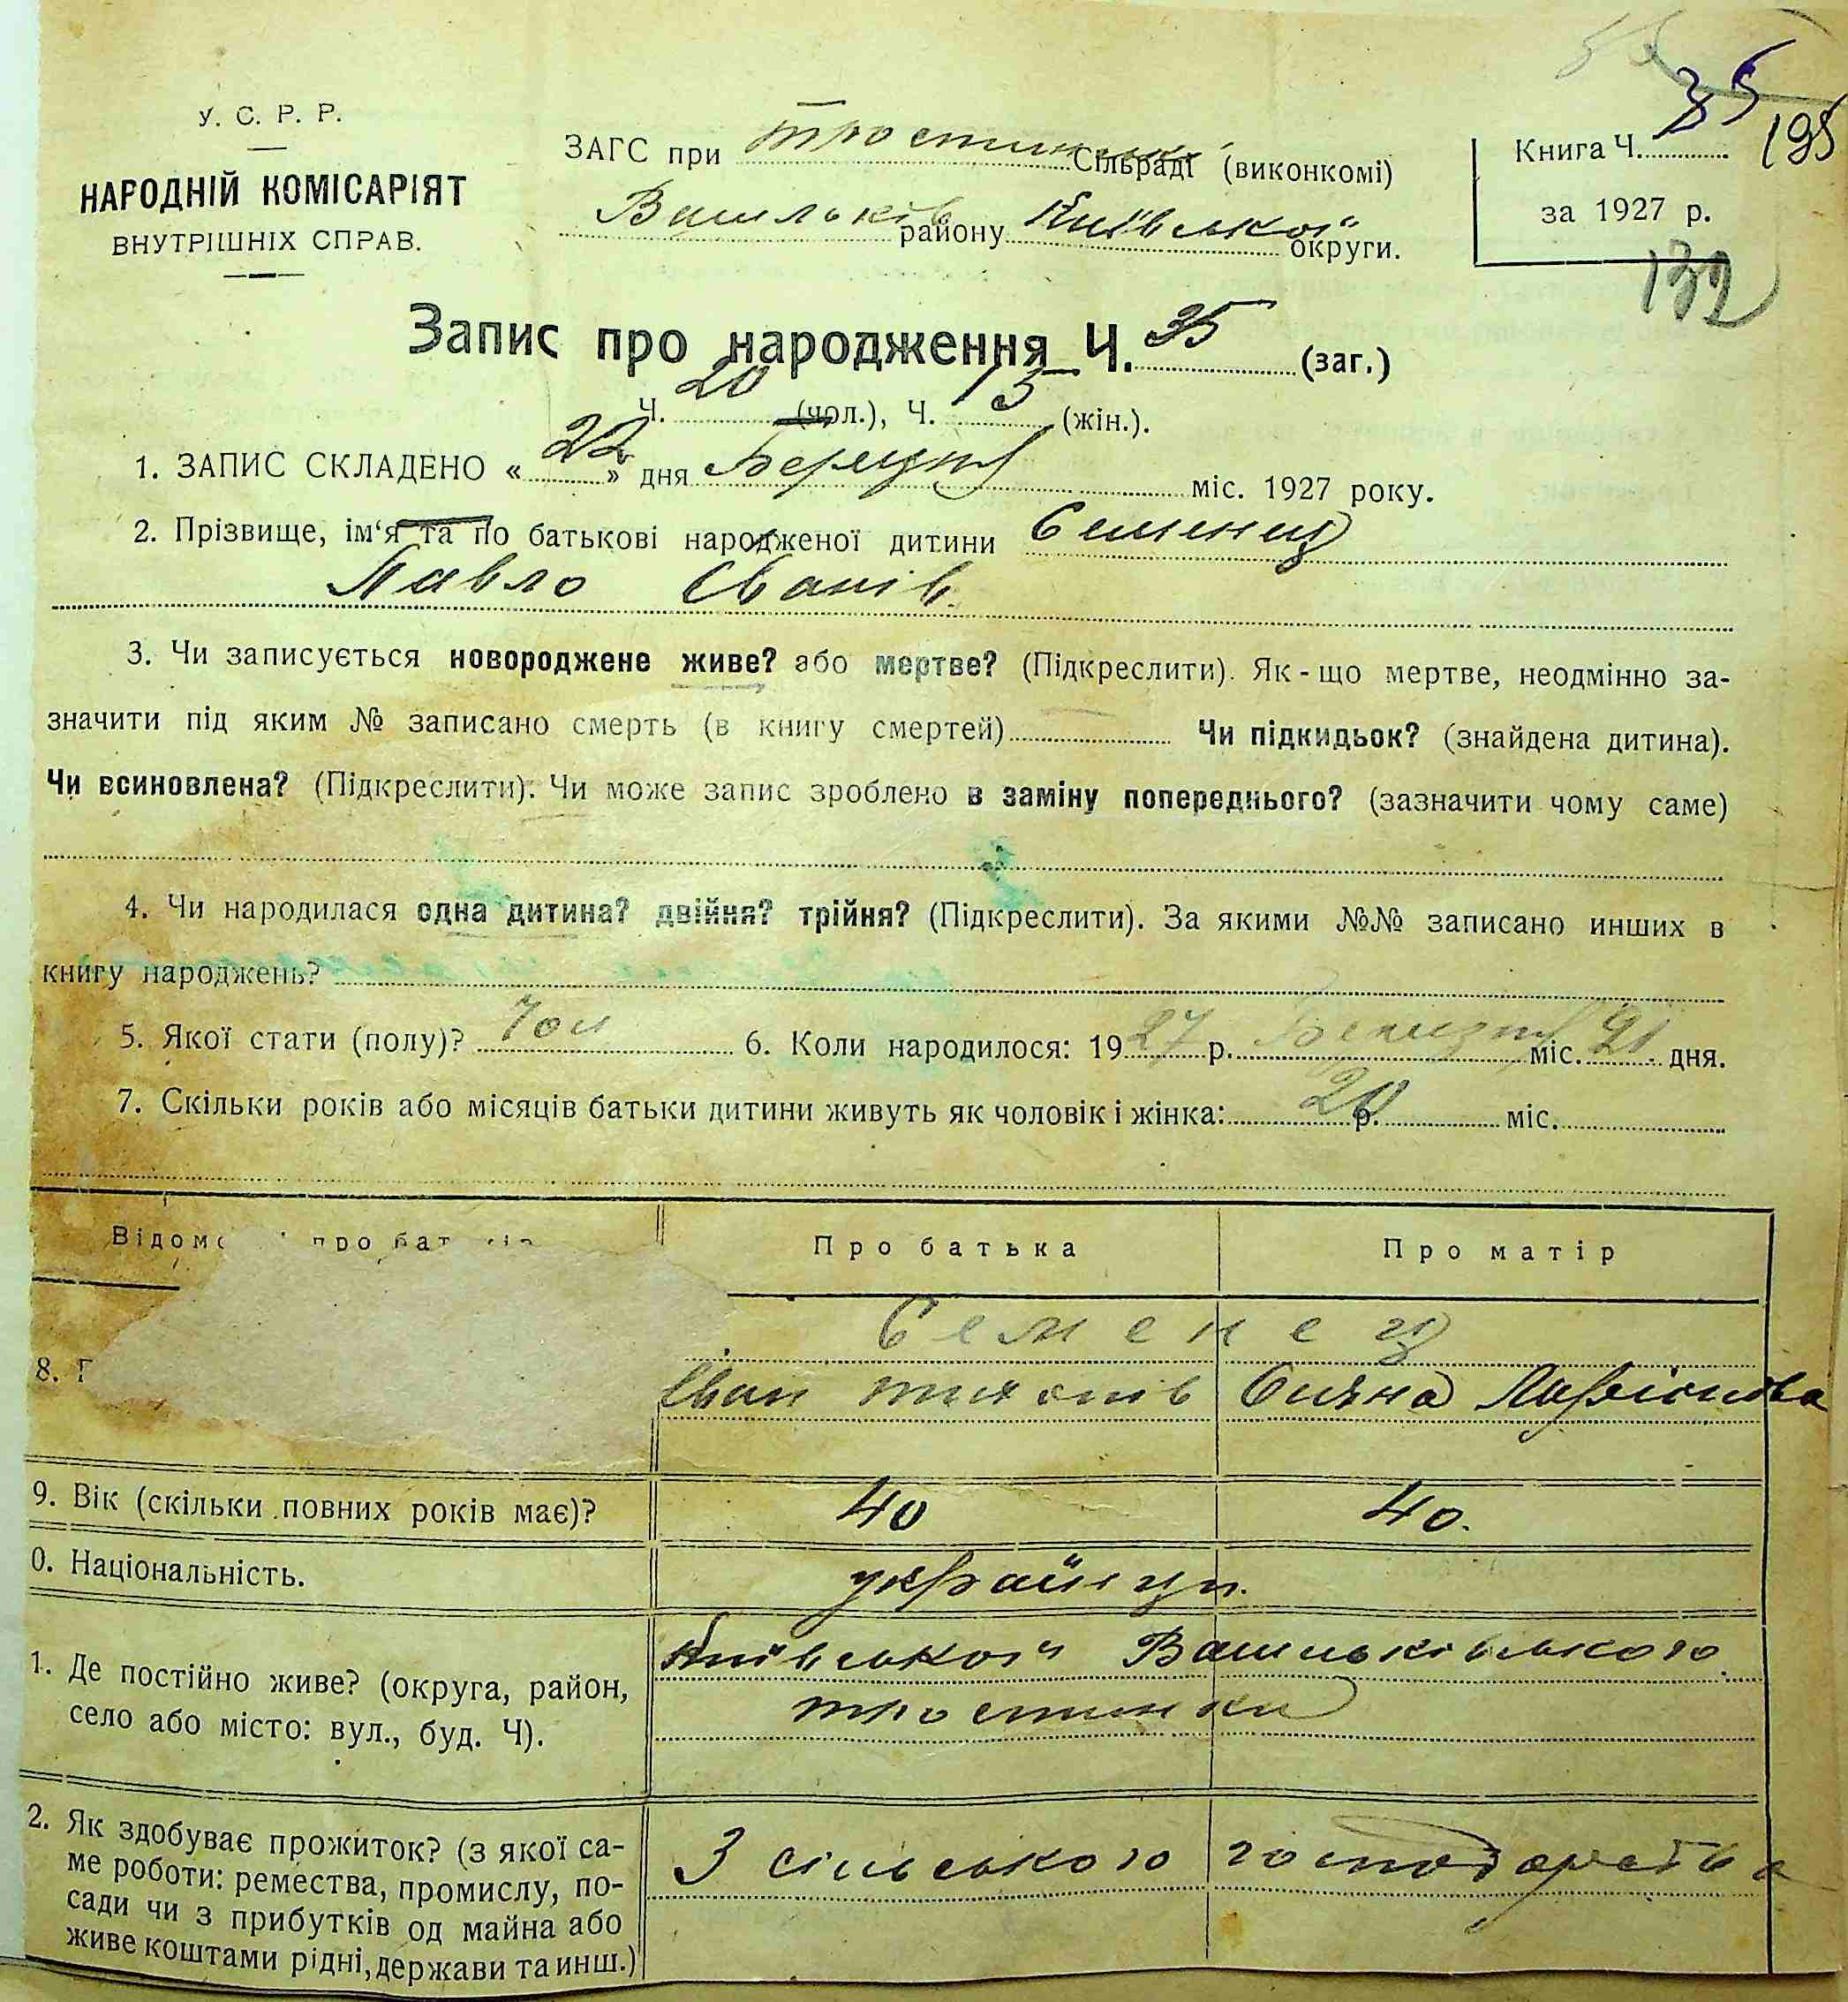 У. С. Р. Р.
НАРОДНІЙ КОМІСАРІЯТ
ВНУТРІШНІХ СПРАВ.
ЗАГС при Тростинські Сільраді (виконкомі)
Васильків району Київської округи.
Книга Ч. 35 195
за 1927 р.
132
Запис про народження Ч. 35 (заг.)
Ч. 20 (чол.), Ч. 15 (жін.).
1. ЗАПИС СКЛАДЕНО « 22 » дня Березня міс. 1927 року.
2. Прізвище, ім‘я та по батькові народженої дитини Семенец
Павло Іванів.
3. Чи записується новороджене живе? або мертве? (Підкреслити). Як - що мертве, неодмінно за-
значити під яким № записано смерть (в книгу смертей) Чи підкидьок? (знайдена дитина).
Чи всиновлена? (Підкреслити). Чи може запис зроблено в заміну попереднього? (зазначити чому саме)
4. Чи народилася одна дитина? двійня? трійня? (Підкреслити). За якими №№ записано инших в
книгу народжень?
5. Якої стати (полу)? Чол 6. Коли народилося: 1927 р. Березня міс. 21 дня.
7. Скільки років або місяців батьки дитини живуть як чоловік і жінка: 20 р. міс.
Відомо про бат Про батька Про матір
Семенец
8. Іван Тихонів Оляна Ларіонова
9. Вік (скільки повних років має)? 40 40.
0. Національність. українци.
1. Де постійно живе? (округа, район, Київської Васильківського
село або місто: вул., буд. Ч). Тростинки
2. Як здобуває прожиток? (з якої са- З сільського господарства
ме роботи: ремества, промислу, по-
сади чи з прибутків од майна або
живе коштами рідні, держави та инш.)